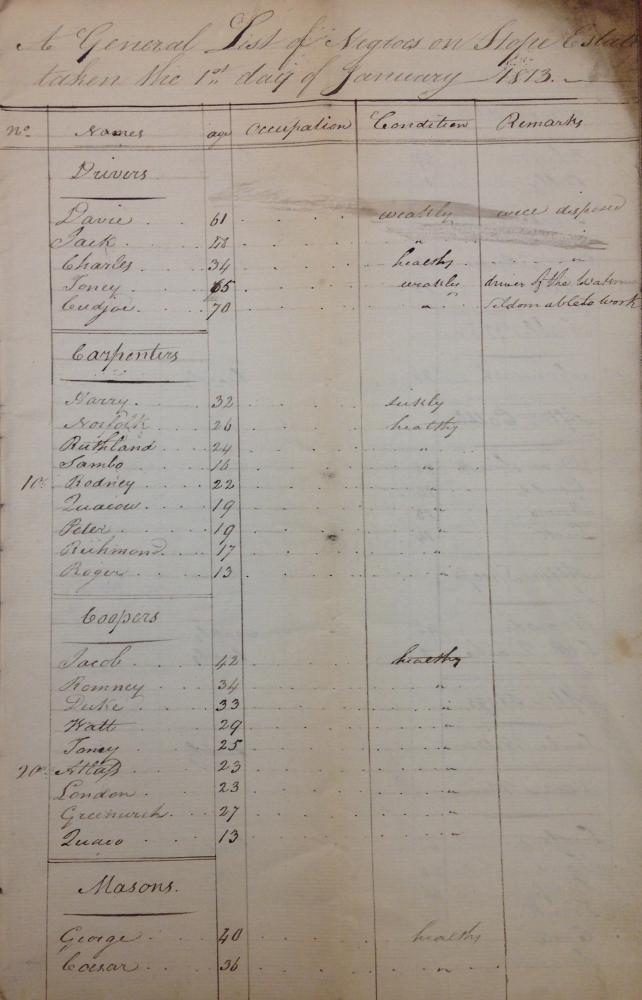 A General List of Negroes on Hope Estate
taken the 1st day of January 1813.
No. Names age Occupation Condition Remarks
Drivers
Davie 61 weakly well disposed
Jack "
Charles 34 healthy "
Toney 65 weakly driver of the
Cudjoe 70 " seldom able to work
Carpenters
Harry 32 sickly
Norfolk 26 healthy
Ruthland 24 "
Sambo 16 "
10 Rodney 22 "
Quacow 19 "
Peter 19 "
Richmond 17 "
Roger 13 "
Coopers
Jacob 42 healthy
Romney 34 "
Duke 33 "
Watt 29 "
Toney 25 "
20 Atlass 23 "
London 23 "
Greenwich 27 "
Quaco 13 "
Masons.
George 40 healthy
Coesar 36 "